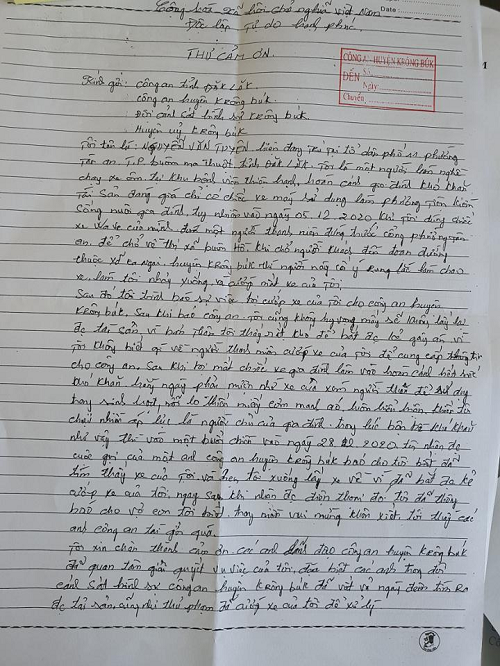 Date
Cộng hòa xã hội chủ nghĩa Việt Nam
Độc lập Tự do hạnh phúc.
THƯ CẢM ƠN.
CÔNG AN HUYỆN KRÔNG BÚK
ĐẾN Số:
Ngày:
Chuyển:
Kính gửi: Công an tỉnh ĐĂK LĂK.
Công an huyện KRông búk.
Đội cảnh sát hình sự KRông búk.
Huyện uỷ KRông búk
Tôi tên là: NGUYỄN VĂN TUYÊN hiện đang trú tại tổ dân phố 11 phường
Tân an. T.P buôn ma thuột tỉnh Đăk Lăk. Tôi là một người làm nghề
chạy xe ôm tại khu bệnh viện thiện hạnh, hoàn cảnh gia đình khó khăn
Tài sản đáng giá chỉ có chiếc xe máy sử dụng làm phương tiện kiếm
sống nuôi gia đình tuy nhiên vào ngày 05.12.2020 khi tôi dùng chiếc
xe của mình đưa một người thanh niên đứng trước cổng
để chở về thị xã buôn Hồ. Khi chở người khách đến đoạn đường
thuộc huyện KRông búk thì người này có ý
xe, làm tôi nhảy xuống và cướp mất xe của tôi.
Sau đó tôi trình báo sự việc bị cướp xe của tôi cho công an huyện
KRông búk. Sau khi báo công an tôi cũng không hy vọng mấy sẽ lấy lại
đc tài sản vì bản thân tôi thấy rất khó để bắt đc kẻ gây án vì
tôi không biết gì về người thanh niên cướp xe của tôi để cung cấp thông tin
cho công an. Sau khi bị mất chiếc xe gia đình lâm vào hoàn cảnh hết sức
khó khăn hằng ngày phải mượn nhờ xe của xóm người để
hay sinh hoạt, nỗi lo thiếu miếng cơm manh áo luôn hiện
chịu nhiều áp lực là người chủ của gia đình. trong lúc khó khăn
như vậy thì vào một buổi chiều vào ngày 28 2020 tôi nhận đc
cuộc gọi của một anh công an huyện KRông búk báo cho tôi biết đã
tìm thấy xe của tôi và tôi xuống lấy xe về vì đã bắt đc kẻ
cướp xe của tôi, ngay sau khi nhận đc điện thoại đó tôi đã thông
báo cho vợ con tôi biết. vui mừng khôn xiết. tôi thấy các
anh công an tài giỏi quá.
Tôi xin chân thành cảm ơn. các anh lãnh đạo công an huyện KRông búk
đã quan tâm giải quyết vụ việc của tôi, đặc biệt các anh trong đội
cảnh sát hình sự công an huyện KRông búk đã vất vả ngày đêm tìm ra
đc tài sản, cũng như thủ phạm đã cướp xe của tôi để xử lý